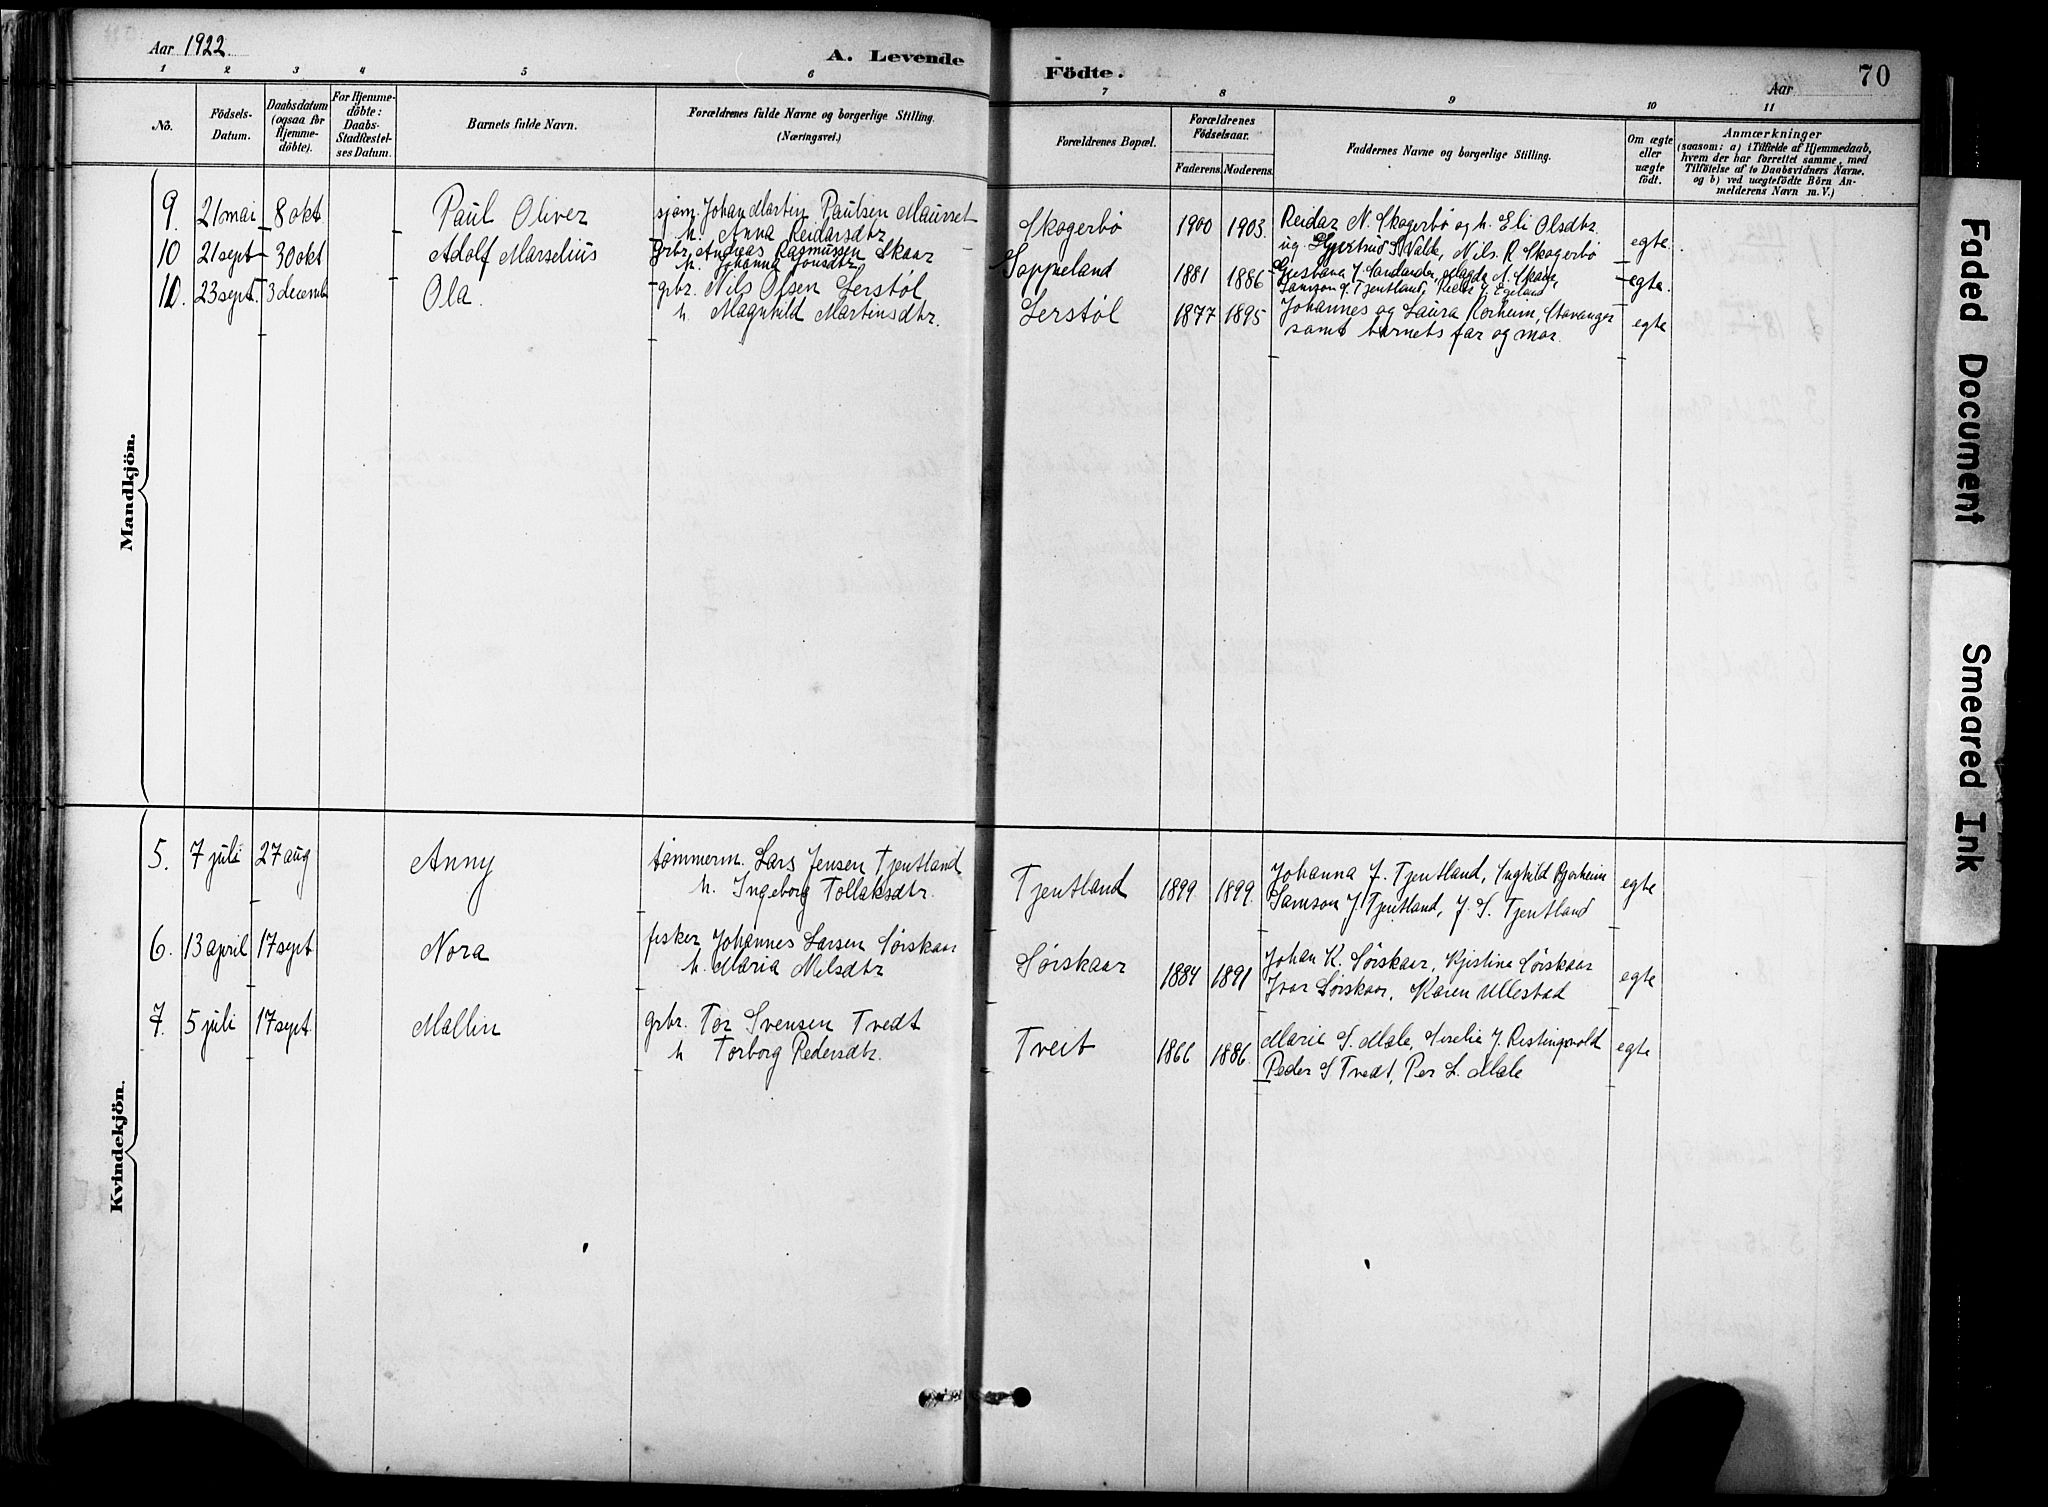 Aar 1922.
A. Levende
Födte.
Aar
70
1 2 3 4 5 6 7 8 9 10 11
No.
Födsels-Datum.
Daabsdatum (ogsaa for Hjemme-döbte).
For Hjemme-döbte: Daabs-Stadfæstel-ses Datum.
Barnets fulde Navn.
Forældrenes fulde Navne og borgerlige Stilling.
(Næringsvei.)
Forældrenes Bopæl.
Forældrenes Födselsaar.
Faderens. Moderens.
Faddernes Navne og borgerlige Stilling.
Om ægte eller uægte födt.
Anmærkninger
(saasom: a) i Tilfælde af Hjemmedaab, hvem der har forrettet samme, med Tilföielse af to Daabsvidners Navne, og b) ved uægtefödte Börn Anmelderens Navn m. V.)
Mandkjön.
9. 21 mai 8 okt Paul Oliver sjøm. Johan Martin Paulsen Maurset
h. Anna Reidarsdtr
Skogerbø 1900 1903. Reidar N. Skogerbø og h. Eli Olsdtr.
ug. Gjertrud S. Valde, Nils R. Skogerbø egte.
10 21 sept 30 okt Adolf Marselius grbr. Andreas Rasmussen Skaar
h. Johanna Jonsdtr
Soppeland 1881 1886 J. Sandanger, Magda A. Skaar,
Samson J. Tjentland, egte.
10. 23 sept. 3 decemb Ola. grbr. Nils Olsen Lerstøl
h. Magnhild Martinsdtr.
Lerstøl 1877 1895 Johannes og Laura Norheim, Stavanger
samt barnets far og mor. egte
Kvindekjön.
5. 7 juli 27 aug Anny tømmerm. Lars Jensen Tjentland
h. Ingeborg Tollaksdtr.
Tjentland 1899. 1899. Johanna J. Tjentland, Inghild Bjorheim
Samson J. Tjentland, J. S. Tjentland egte
6. 13 april 17 sept Nora fisker Johannes Larsen Sørskaar
h. Maria Nilsdtr
Sørskaar 1884 1891 Johan K. Sørskaar, Kjistina Sørskaar
Ivar Sørskaar, Karen Ullestad egte
7. 5 juli 17 sept. Mallin gbr. Tor Svensen Tvedt
h Torborg Pedersdtr.
Tveit 1866 1886. Maria S. Mæle, J. Østingsvold
Peder S Tvedt, Per L. Mæle egte
Faded Document
Smeared Ink